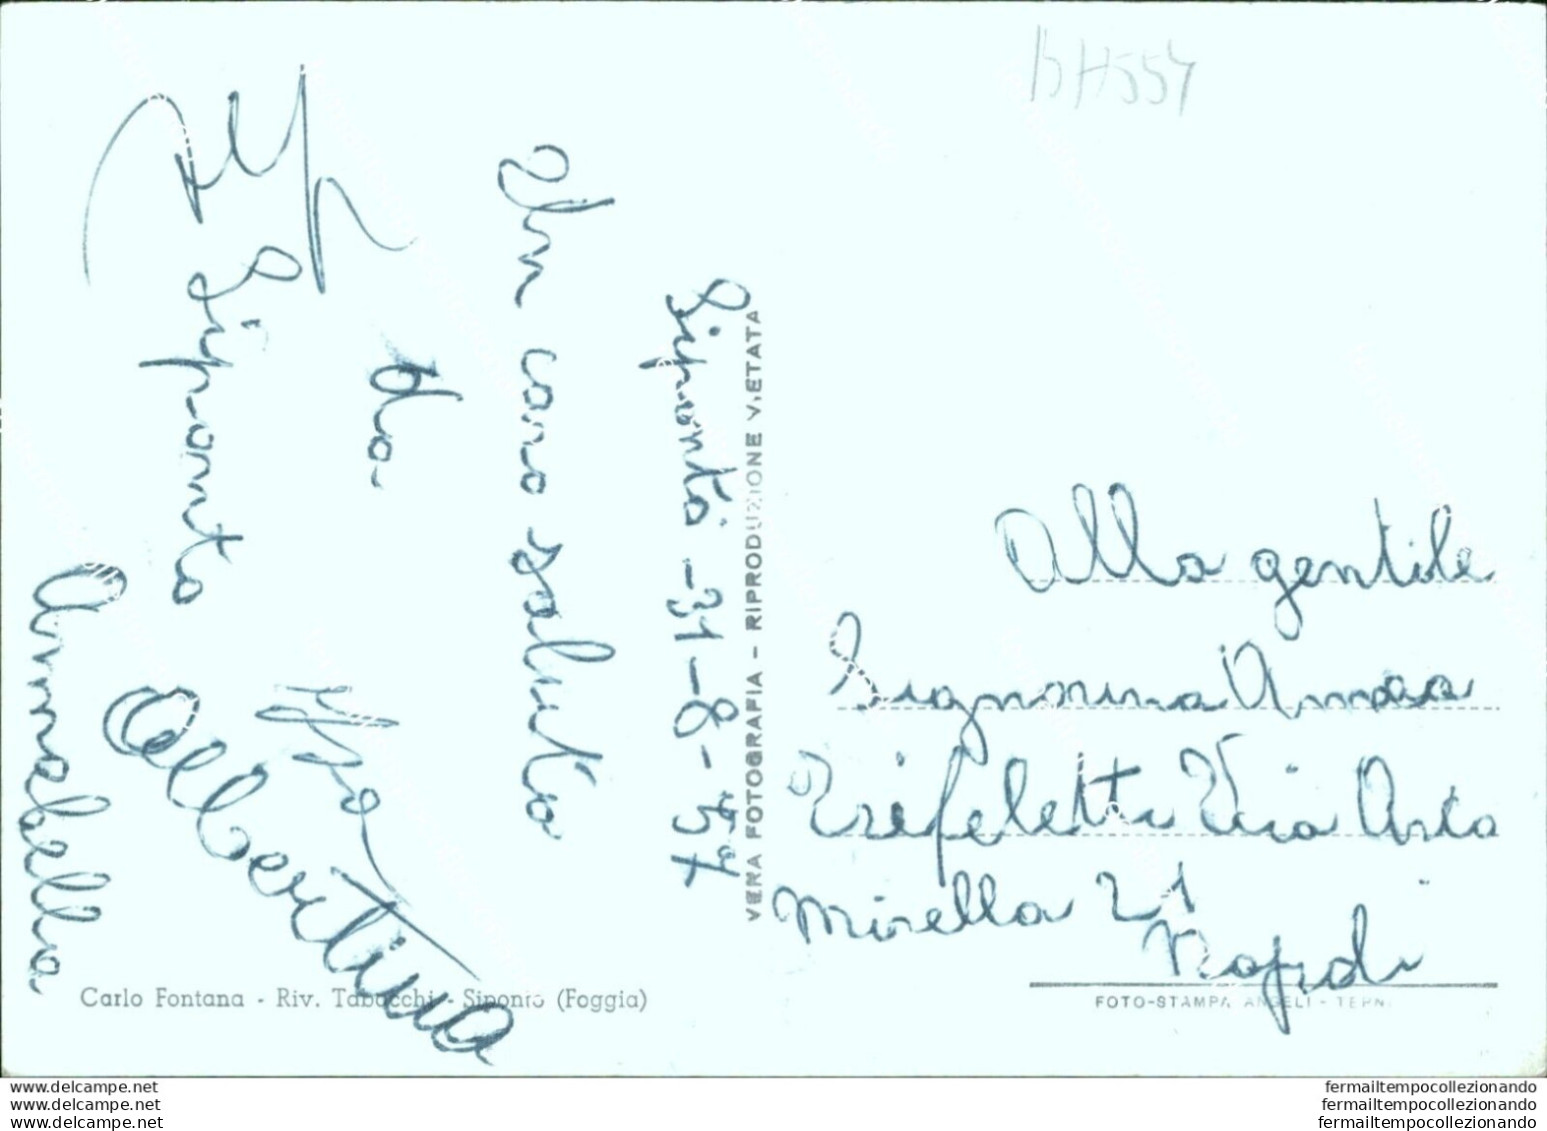 BH554
Siponto - 31-8-57
Un caro saluto
da
Siponto
Albertina
Annabella
Alla gentile
Signorina Anna
Trifeletti Via Arto
Mirella 21
Napoli
VERA FOTOGRAFIA - RIPRODUZIONE VIETATA
Carlo Fontana - Riv. Tabacchi - Siponto (Foggia)
FOTO-STAMPA ANGELI - TERNI
delcampe.net
delcampe.net
delcampe.net
fermailtempocollezionando
fermailtempocollezionando
fermailtempocollezionando